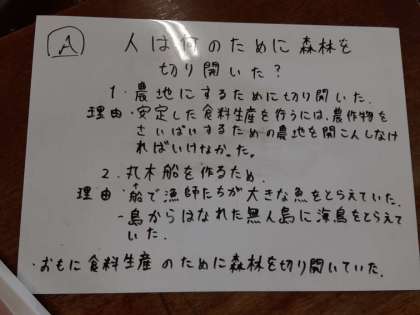 A
人は何のために森林を
切り開いた?
1. 農地にするために切り開いた.
理由・安定した食料生産を行うには、農作物を
さいばいするための農地を開こんしなけ
ればいけなかった。
2. 丸木船を作るため.
理由・船で漁師たちが大きな魚をとらえていた.
・島からはなれた無人島に海鳥をとらえて
いた.
・おもに食料生産のために森林を切り開いていた.